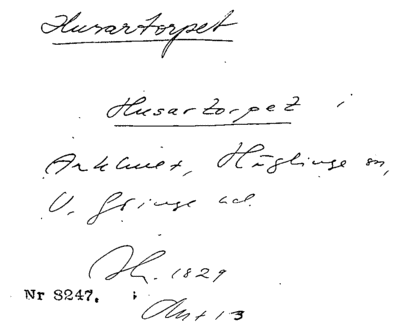 Husartorpet
Husartorpet i
Arkhult, Häglinge sn,
V. Göinge hd.
1829
Nr 8247.